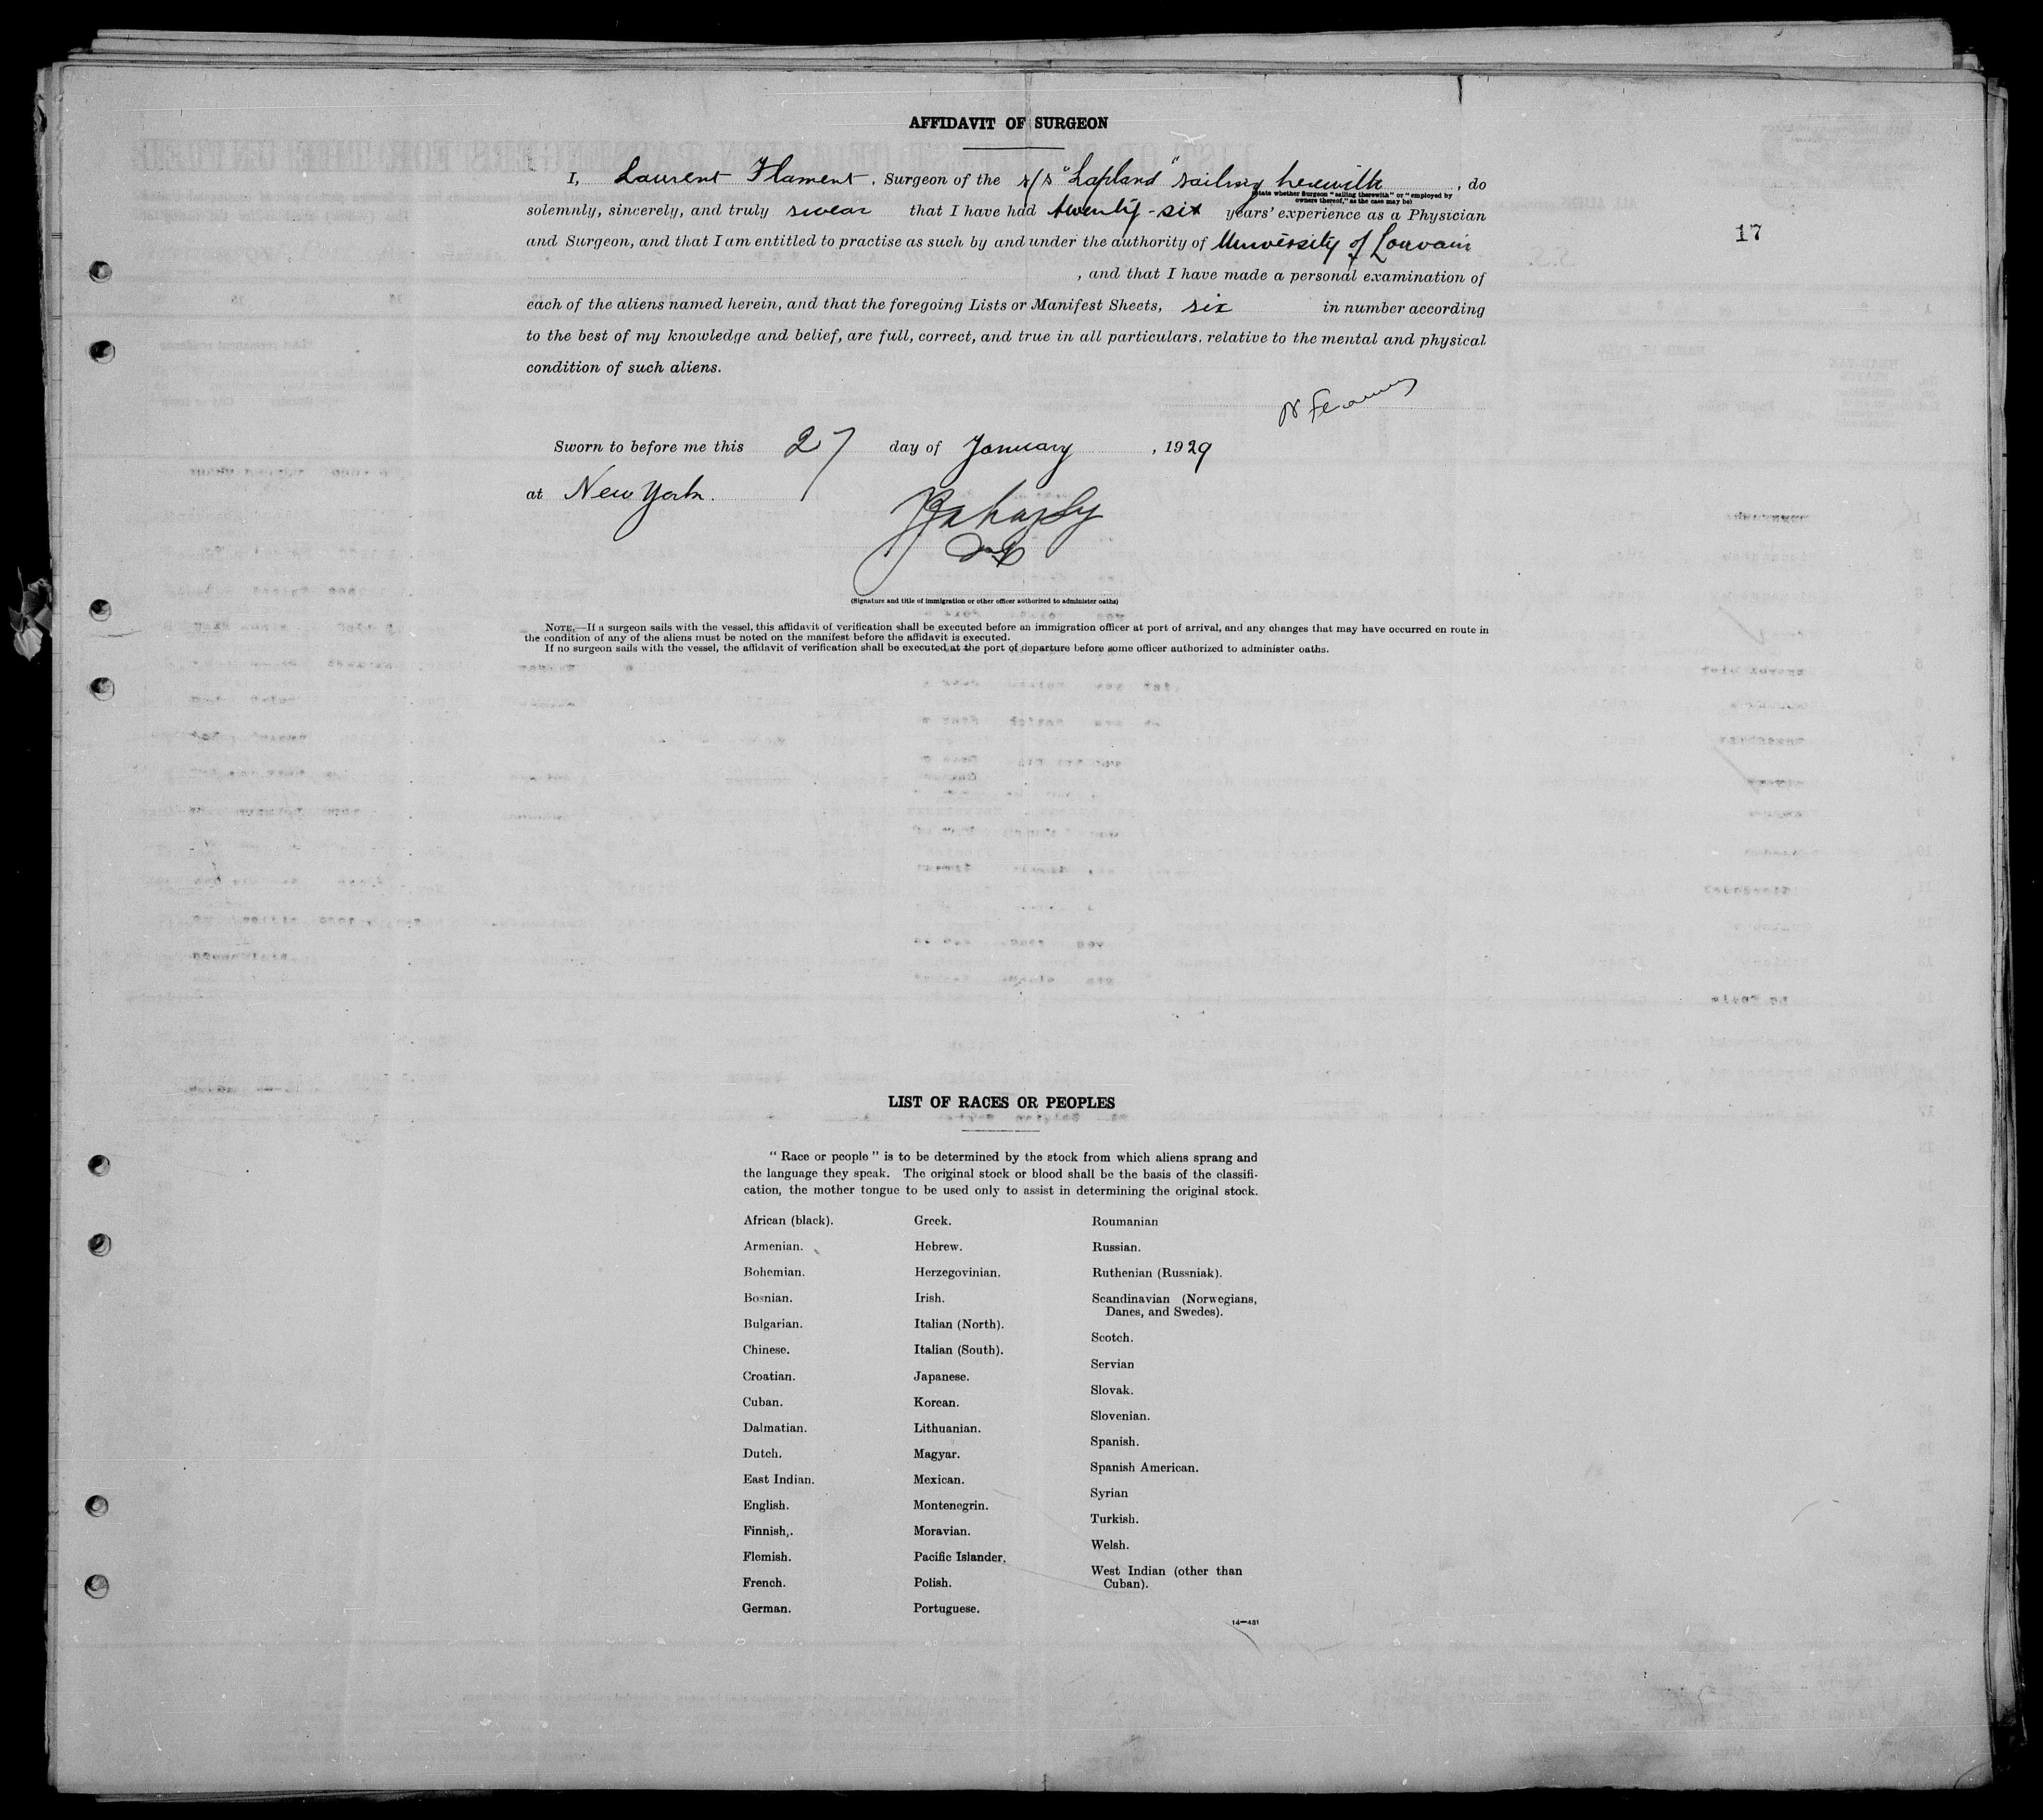 AFFIDAVIT OF SURGEON
I, Laurent Flament, Surgeon of the s/s "Lapland" sailing herewith, do
(State whether Surgeon "sailing therewith" or "employed by
owners thereof," as the case may be)
solemnly, sincerely, and truly swear that I have had twenty-six years' experience as a Physician
and Surgeon, and that I am entitled to practise as such by and under the authority of University of Louvain
17
, and that I have made a personal examination of
each of the aliens named herein, and that the foregoing Lists or Manifest Sheets, six in number according
to the best of my knowledge and belief, are full, correct, and true in all particulars. relative to the mental and physical
condition of such aliens.
Sworn to before me this 27 day of January, 1929
at New York.
(Signature and title of immigration or other officer authorized to administer oaths)
NOTE.—If a surgeon sails with the vessel, this affidavit of verification shall be executed before an immigration officer at port of arrival, and any changes that may have occurred en route in
the condition of any of the aliens must be noted on the manifest before the affidavit is executed.
If no surgeon sails with the vessel, the affidavit of verification shall be executed at the port of departure before some officer authorized to administer oaths.
LIST OF RACES OR PEOPLES
"Race or people" is to be determined by the stock from which aliens sprang and
the language they speak. The original stock or blood shall be the basis of the classifi-
cation, the mother tongue to be used only to assist in determining the original stock.
African (black).
Armenian.
Bohemian.
Bosnian.
Bulgarian.
Chinese.
Croatian.
Cuban.
Dalmatian.
Dutch.
East Indian.
English.
Finnish,.
Flemish.
French.
German.
Greek.
Hebrew.
Herzegovinian.
Irish.
Italian (North).
Italian (South).
Japanese.
Korean.
Lithuanian.
Magyar.
Mexican.
Montenegrin.
Moravian.
Pacific Islander.
Polish.
Portuguese.
Roumanian
Russian.
Ruthenian (Russniak).
Scandinavian (Norwegians,
Danes, and Swedes).
Scotch.
Servian
Slovak.
Slovenian.
Spanish.
Spanish American.
Syrian
Turkish.
Welsh.
West Indian (other than
Cuban).
14—431